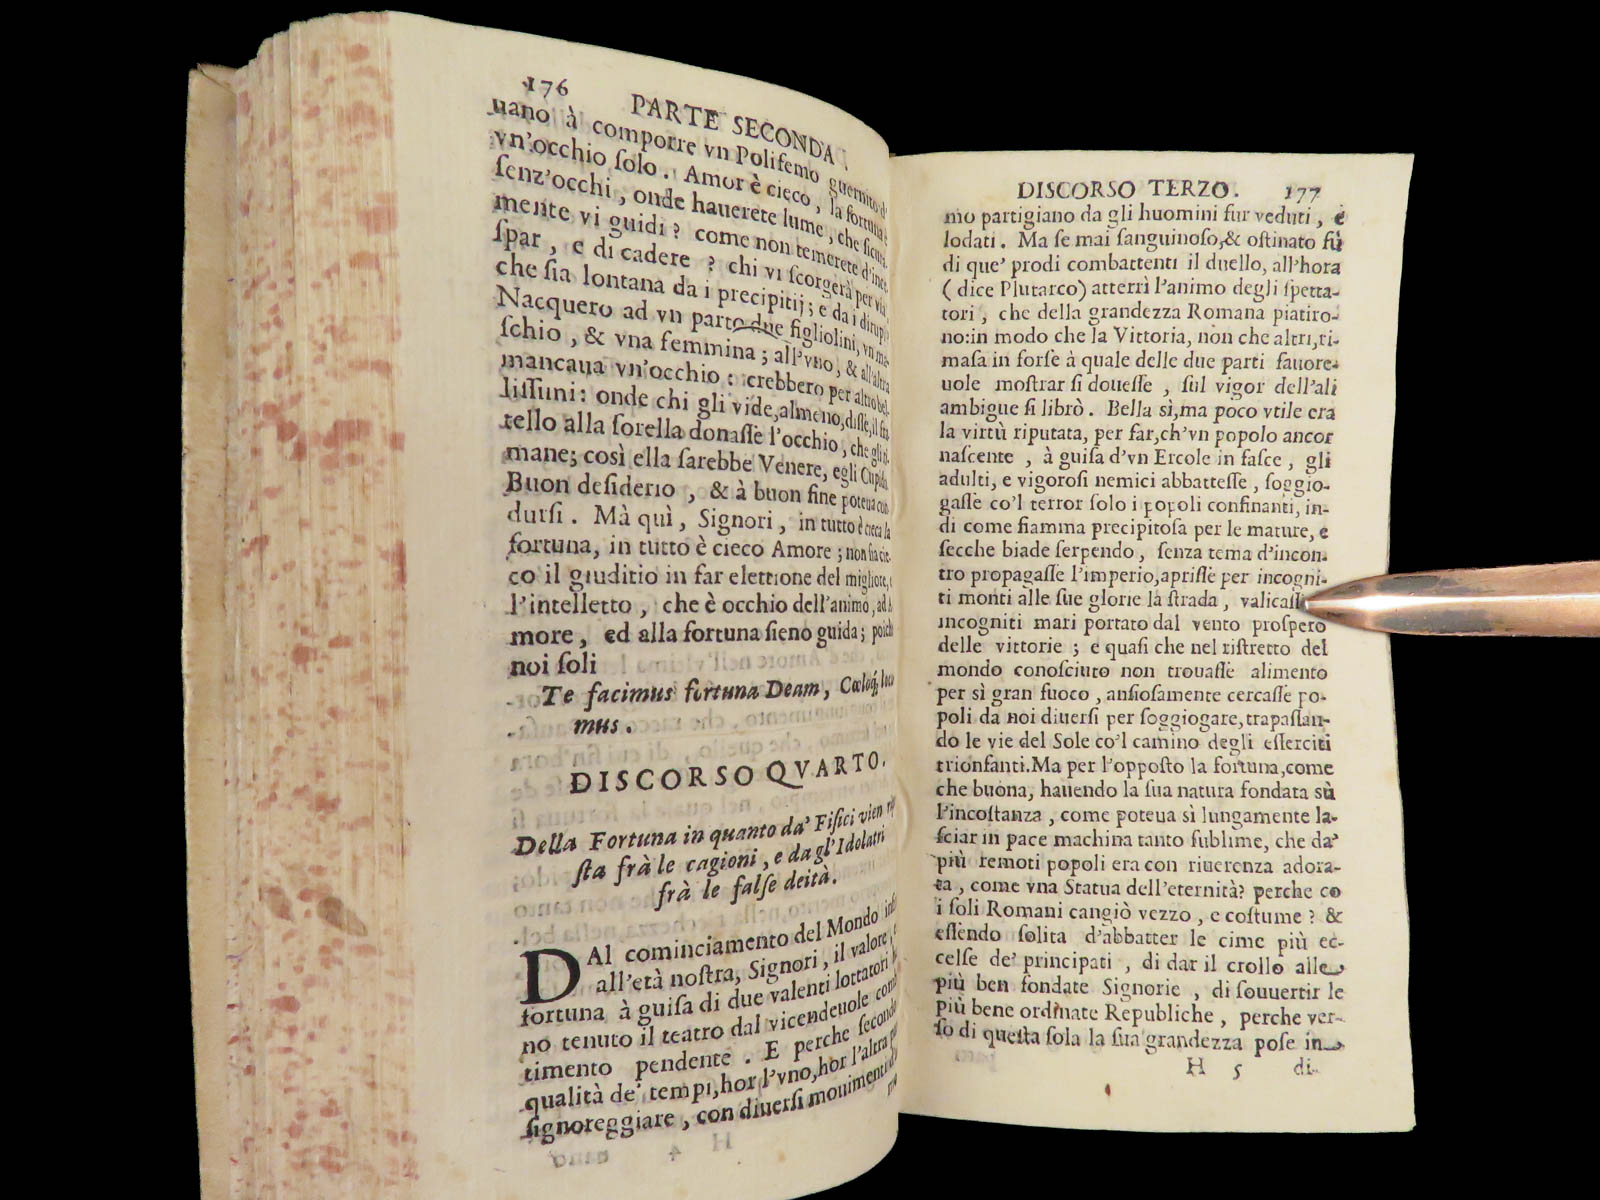 176
PARTE SECONDA.
uano à comporre vn Polifemo guernito d'
vn'occhio ſolo. Amor è cieco, la fortuna è
ſenz'occhi, onde hauerete lume, che ſicura-
mente vi guidi? come non temerete d'inci-
ſpar, e di cadere? chi vi ſcorgerà per via,
che ſia lontana da i precipitij; e da i dirupi?
Nacquero ad vn parto due figliolini, vn ma-
ſchio, & vna femmina; all'vno, & all'altra
mancaua vn'occhio: crebbero per altro bel-
liſſimi: onde chi gli vide, almeno, diſſe, il fra-
tello alla ſorella donaſſe l'occhio, che gli ri-
mane; così ella ſarebbe Venere, egli Cupido.
Buon deſiderio, & à buon fine poteua con-
durſi. Mà quì, Signori, in tutto è cieca la
fortuna, in tutto è cieco Amore; non ſia cie-
co il giuditio in far elettione del migliore, e
l'intelletto, che è occhio dell'animo, ad A-
more, ed alla fortuna ſieno guida; poiche
noi ſoli
Te facimus fortuna Deam, Cœloq; loca
mus.
DISCORSO QVARTO.
Della Fortuna in quanto da' Fiſici vien
ſta frà le cagioni, e da gl'Idolatri
frà le falſe deità.
DAl cominciamento del Mondo
all'età noſtra, Signori, il valore,
fortuna à guiſa di due valenti lottatori
no tenuto il teatro dal vicendeuole
timento pendente. E perche ſecondo
qualità de' tempi, hor l'vno, hor l'altra
ſignoreggiare, con diuerſi mouimenti
DISCORSO TERZO. 177
mo partigiano da gli huomini fur veduti, e
lodati. Ma ſe mai ſanguinoſo, & oſtinato fù
di que' prodi combattenti il duello, all'hora
(dice Plutarco) atterrì l'animo degli ſpetta-
tori, che della grandezza Romana piatiro-
no: in modo che la Vittoria, non che altri, ri-
maſa in forſe à quale delle due parti fauore-
uole moſtrar ſi doueſſe, ſul vigor dell'ali
ambigue ſi librò. Bella sì, ma poco vtile era
la virtù riputata, per far, ch'vn popolo ancor
naſcente, à guiſa d'vn Ercole in faſce, gli
adulti, e vigoroſi nemici abbatteſſe, ſoggio-
gaſſe co'l terror ſolo i popoli confinanti, in-
di come fiamma precipitoſa per le mature, e
ſecche biade ſerpendo, ſenza tema d'incon-
tro propagaſſe l'imperio, apriſſe per incogni-
ti monti alle ſue glorie la ſtrada, valicaſſ
incogniti mari portato dal vento proſpero
delle vittorie; e quaſi che nel riſtretto del
mondo conoſciuto non trouaſſe alimento
per sì gran fuoco, anſioſamente cercaſſe po-
poli da noi diuerſi per ſoggiogare, trapaſſan-
do le vie del Sole co'l camino degli eſſerciti
trionfanti. Ma per l'oppoſto la fortuna, come
che buona, hauendo la ſua natura fondata sù
l'incoſtanza, come poteua sì lungamente la-
ſciar in pace machina tanto ſublime, che da'
più remoti popoli era con riuerenza adora-
ta, come vna Statua dell'eternità? perche co
i ſoli Romani cangiò vezzo, e coſtume? &
eſſendo ſolita d'abbatter le cime più ec-
celſe de' principati, di dar il crollo alle
più ben fondate Signorie, di ſouuertir le
più bene ordinate Republiche, perche ver-
ſo di queſta ſola la ſua grandezza poſe in-
H 5 di-